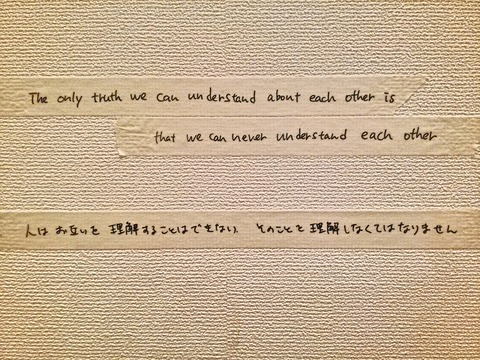 The only truth we can understand about each other is
that we can never understand each other
人は お互いを 理解することはできない. そのことを理解しなくてはなりません